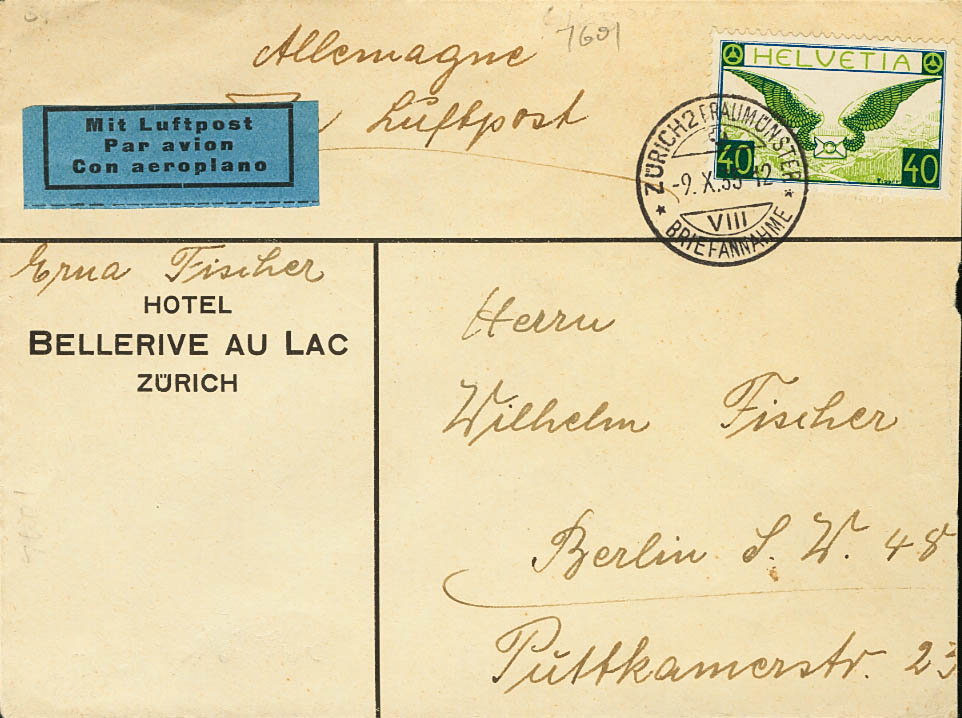 Allemagne
7601
Luftpost
Mit Luftpost
Par avion
Con aeroplano
HELVETIA
40 40
ZÜRICH 2 FRAUMÜNSTER
-9.X.35-12
VIII
BRIEFANNAHME
Erna Fischer
HOTEL
BELLERIVE AU LAC
ZÜRICH
Herrn
Wilhelm Fischer
Berlin S. W. 48
Puttkamerstr. 23